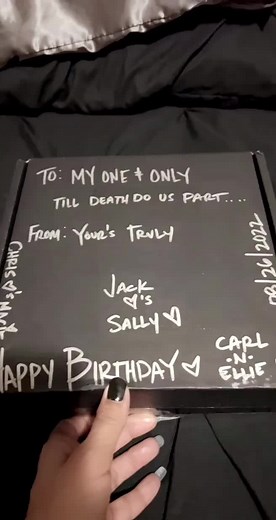 TO: MY ONE & ONLY
TILL DEATH DO US PART....
FROM: YOUR'S TRULY
JACK
♡'S
SALLY ♡
HAPPY BIRTHDAY ♡
CARL
-N-
ELLIE
CHRIS
08/26/2022